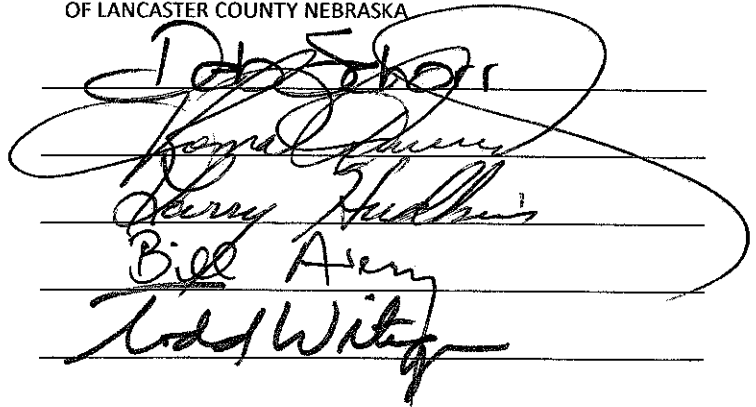 OF LANCASTER COUNTY NEBRASKA
Deb Schorr
Roma Amundson
Larry Hudkins
Bill Avery
Todd Wiltgen